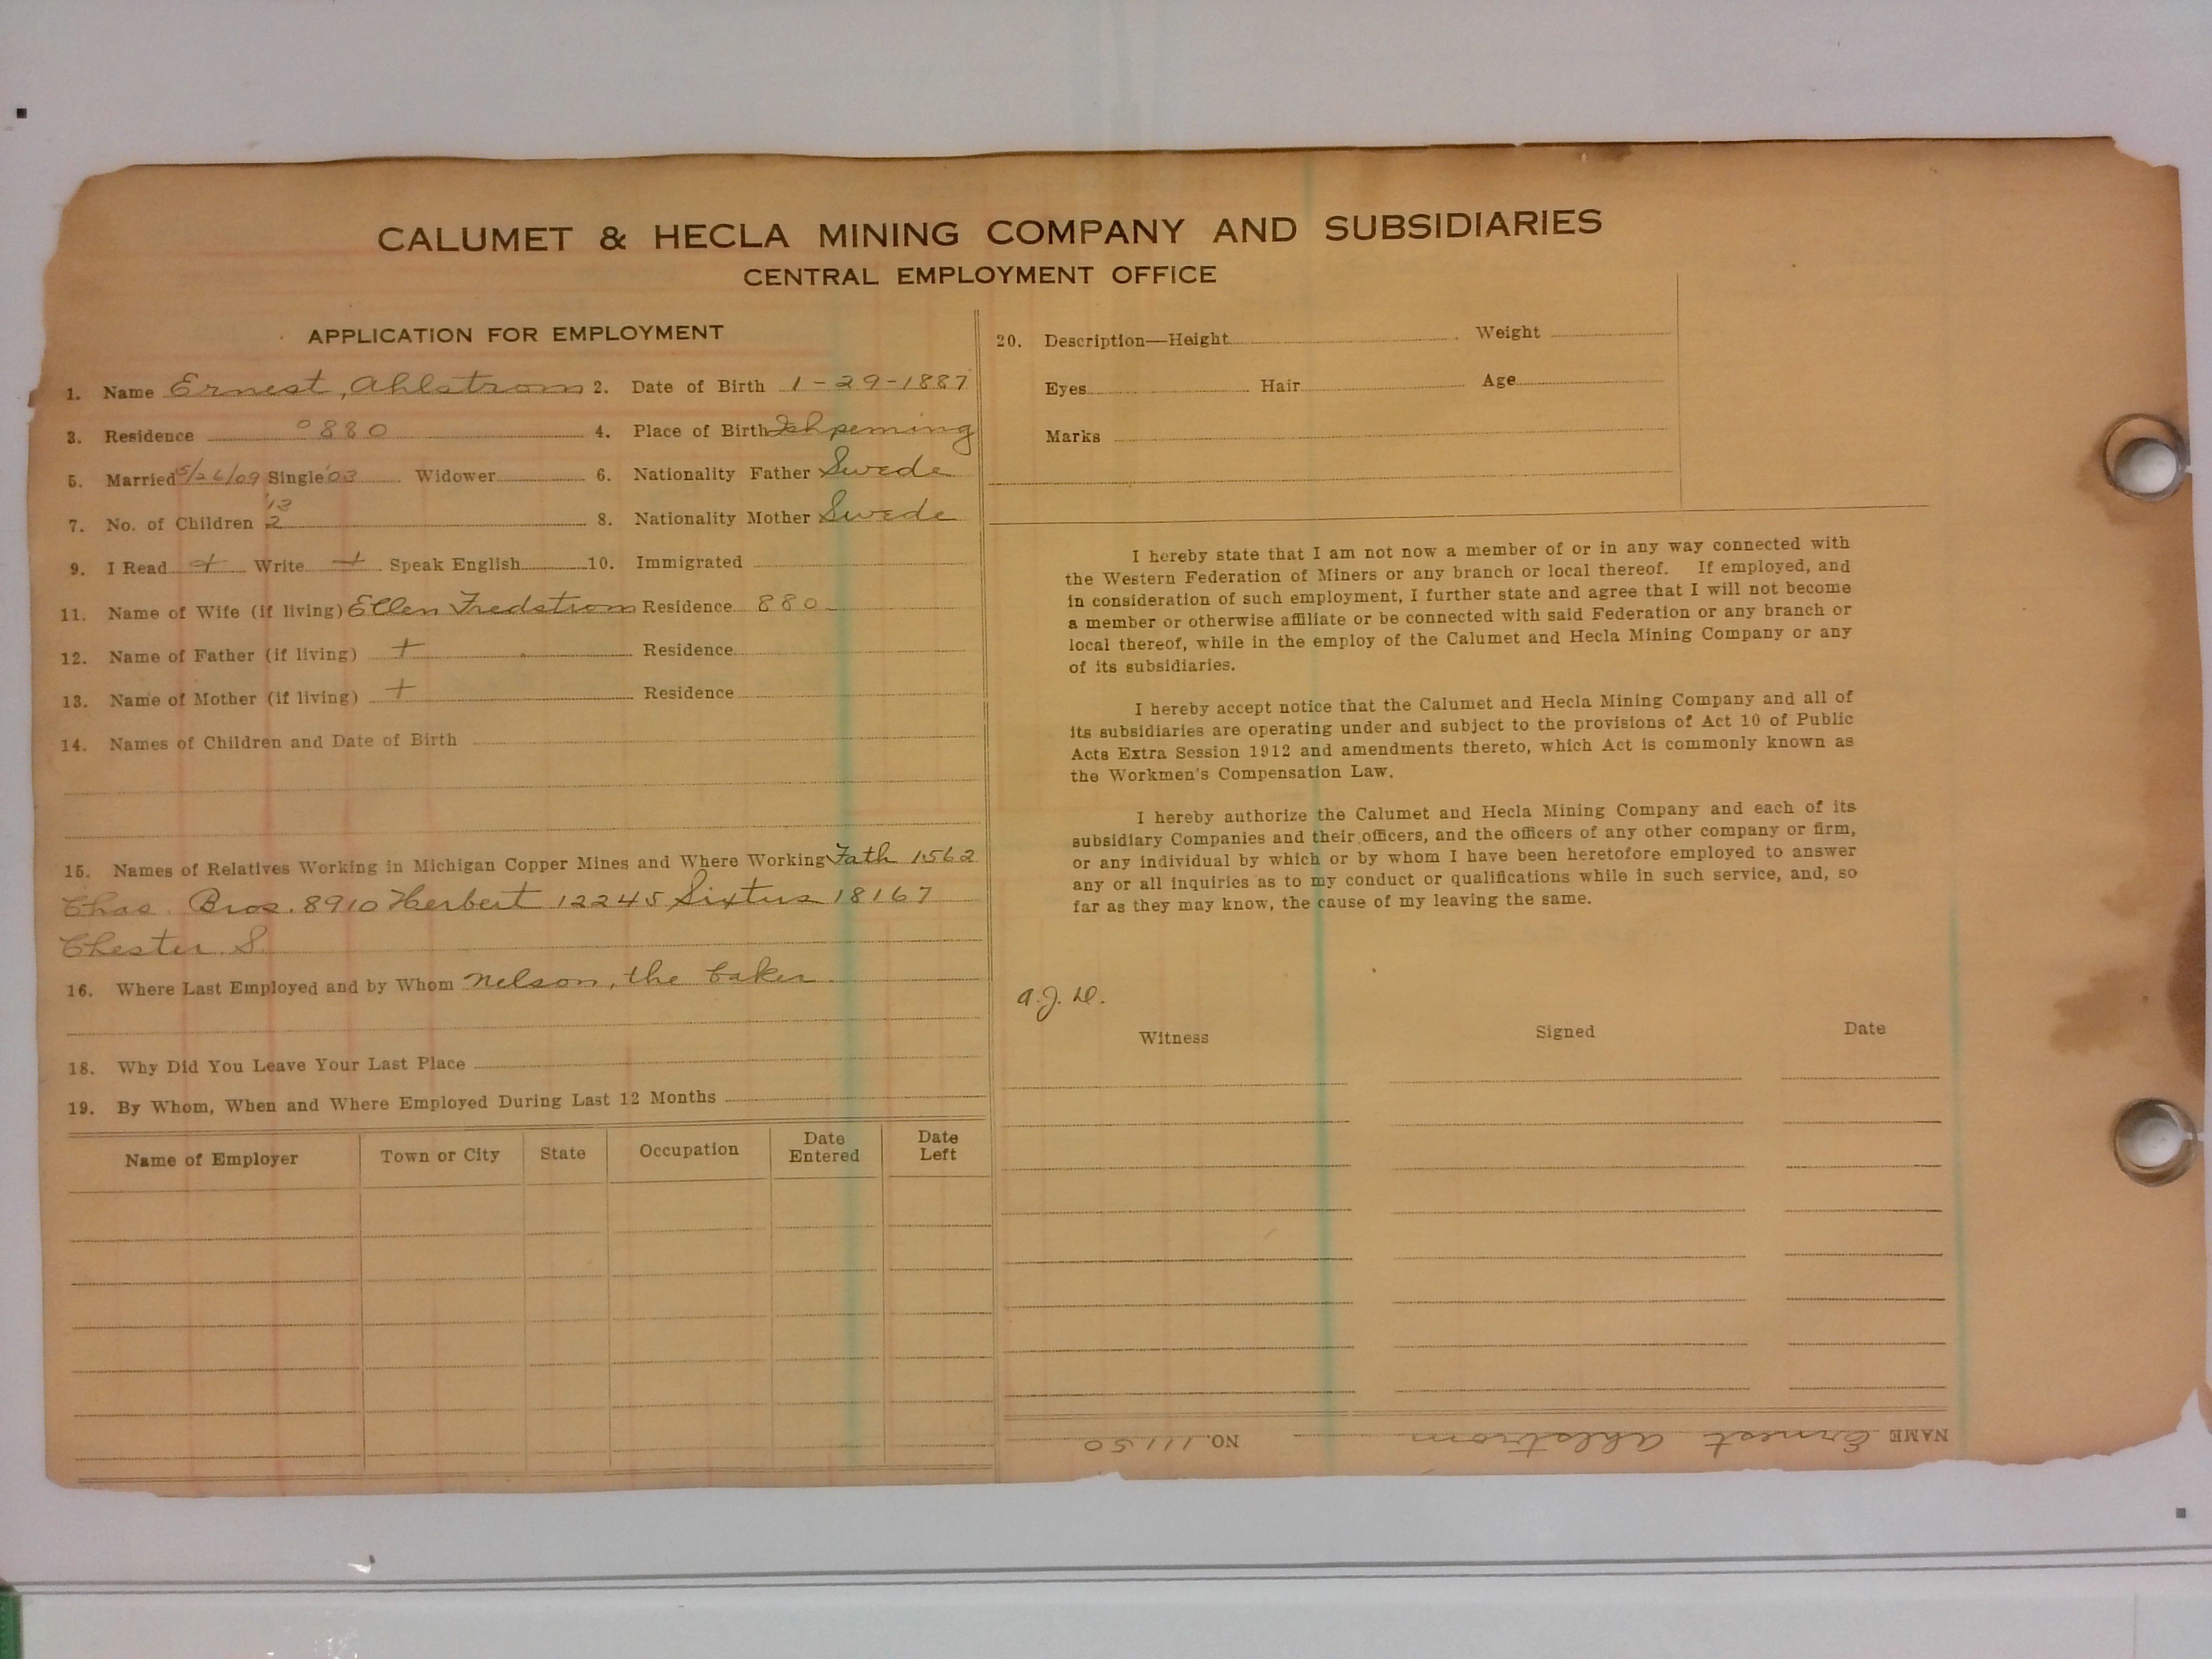 CALUMET & HECLA MINING COMPANY AND SUBSIDIARIES
CENTRAL EMPLOYMENT OFFICE
APPLICATION FOR EMPLOYMENT
1. Name Ernest, Ahlstrom 2. Date of Birth 1-29-1887
3. Residence 880 4. Place of Birth Ishpeming
5. Married 5/26/09 Single '03 Widower 6. Nationality Father Swede
'13
7. No. of Children 2 8. Nationality Mother Swede
9. I Read + Write + Speak English 10. Immigrated
11. Name of Wife (if living) Ellen Fredstrom Residence 880
12. Name of Father (if living) + Residence
13. Name of Mother (if living) + Residence
14. Names of Children and Date of Birth
15. Names of Relatives Working in Michigan Copper Mines and Where Working Fath 1562
Chas. Bros. 8910 Herbert 12245 Sixtus 18167
Chester S.
16. Where Last Employed and by Whom Nelson, the baker
18. Why Did You Leave Your Last Place
19. By Whom, When and Where Employed During Last 12 Months
Name of Employer Town or City State Occupation Date Entered Date Left
20. Description—Height Weight
Eyes Hair Age
Marks
I hereby state that I am not now a member of or in any way connected with
the Western Federation of Miners or any branch or local thereof. If employed, and
in consideration of such employment, I further state and agree that I will not become
a member or otherwise affiliate or be connected with said Federation or any branch or
local thereof, while in the employ of the Calumet and Hecla Mining Company or any
of its subsidiaries.
I hereby accept notice that the Calumet and Hecla Mining Company and all of
its subsidiaries are operating under and subject to the provisions of Act 10 of Public
Acts Extra Session 1912 and amendments thereto, which Act is commonly known as
the Workmen's Compensation Law.
I hereby authorize the Calumet and Hecla Mining Company and each of its
subsidiary Companies and their officers, and the officers of any other company or firm,
or any individual by which or by whom I have been heretofore employed to answer
any or all inquiries as to my conduct or qualifications while in such service, and, so
far as they may know, the cause of my leaving the same.
a.J.D.
Witness Signed Date
NAME Ernest Ahlstrom NO. 11150